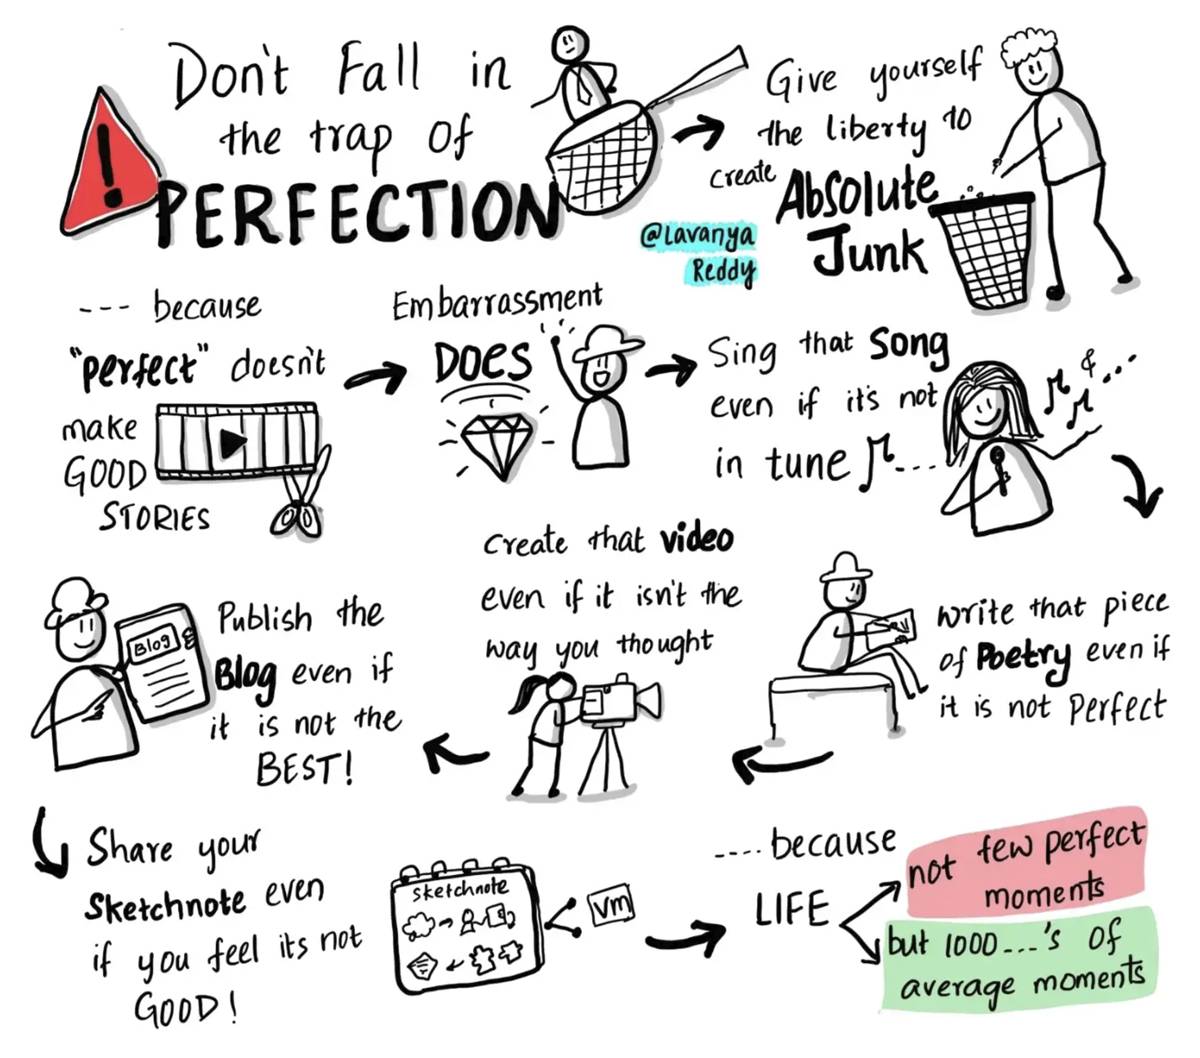 Don't Fall in
the trap of
PERFECTION
Give yourself
the liberty to
create Absolute
Junk
@Lavanya
Reddy
--- because
"perfect" doesn't
make
GOOD
STORIES
Embarrassment
DOES
Sing that Song
even if it's not
in tune ....
& ...
Write that piece
of Poetry even if
it is not Perfect
Create that video
even if it isn't the
way you thought
Publish the
Blog even if
it is not the
BEST!
Blog
Share your
Sketchnote even
if you feel its not
GOOD!
Sketchnote
VM
.... because
LIFE
not few perfect
moments
but 1000...'s of
average moments